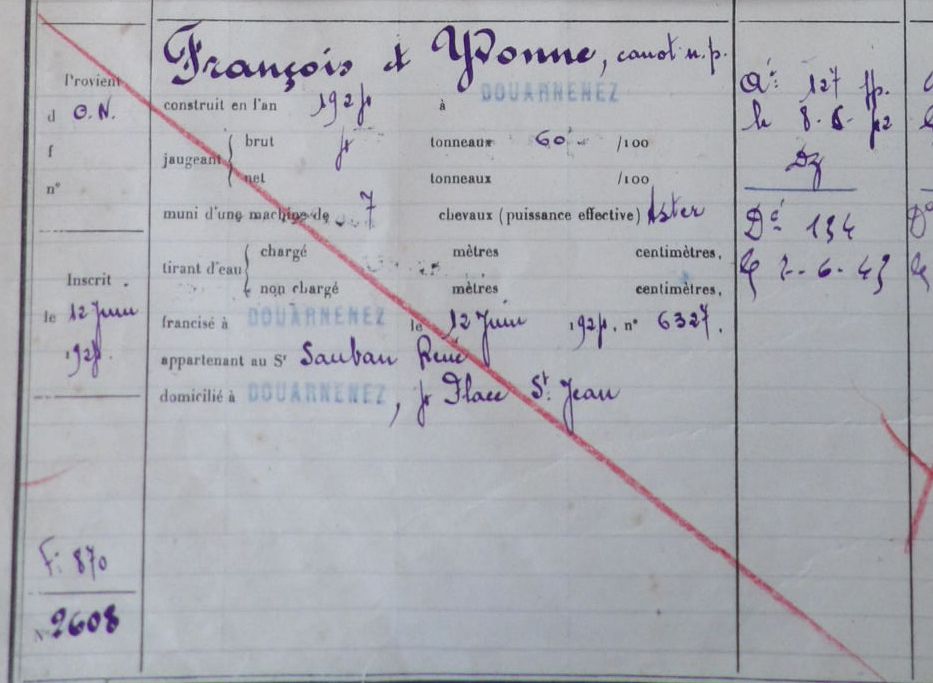 François et Yvonne, canot n.p.
construit en l'an 1925 à DOUARNENEZ
jaugeant { brut 5 tonneaux 60 /100
net tonneaux /100
muni d'une machine de 7 chevaux (puissance effective) Aster
tirant d'eau { chargé mètres centimètres,
non chargé mètres centimètres,
francisé à DOUARNENEZ le 12 Juin 1925. n° 6327.
appartenant au Sr Sauban René
domicilié à DOUARNENEZ, 5 Place St. Jean
Provient
d O.N.
f
n°
Inscrit
le 12 Juin
1925.
F: 870
N° 2608
127
Dz
Dé 134
2-6-43